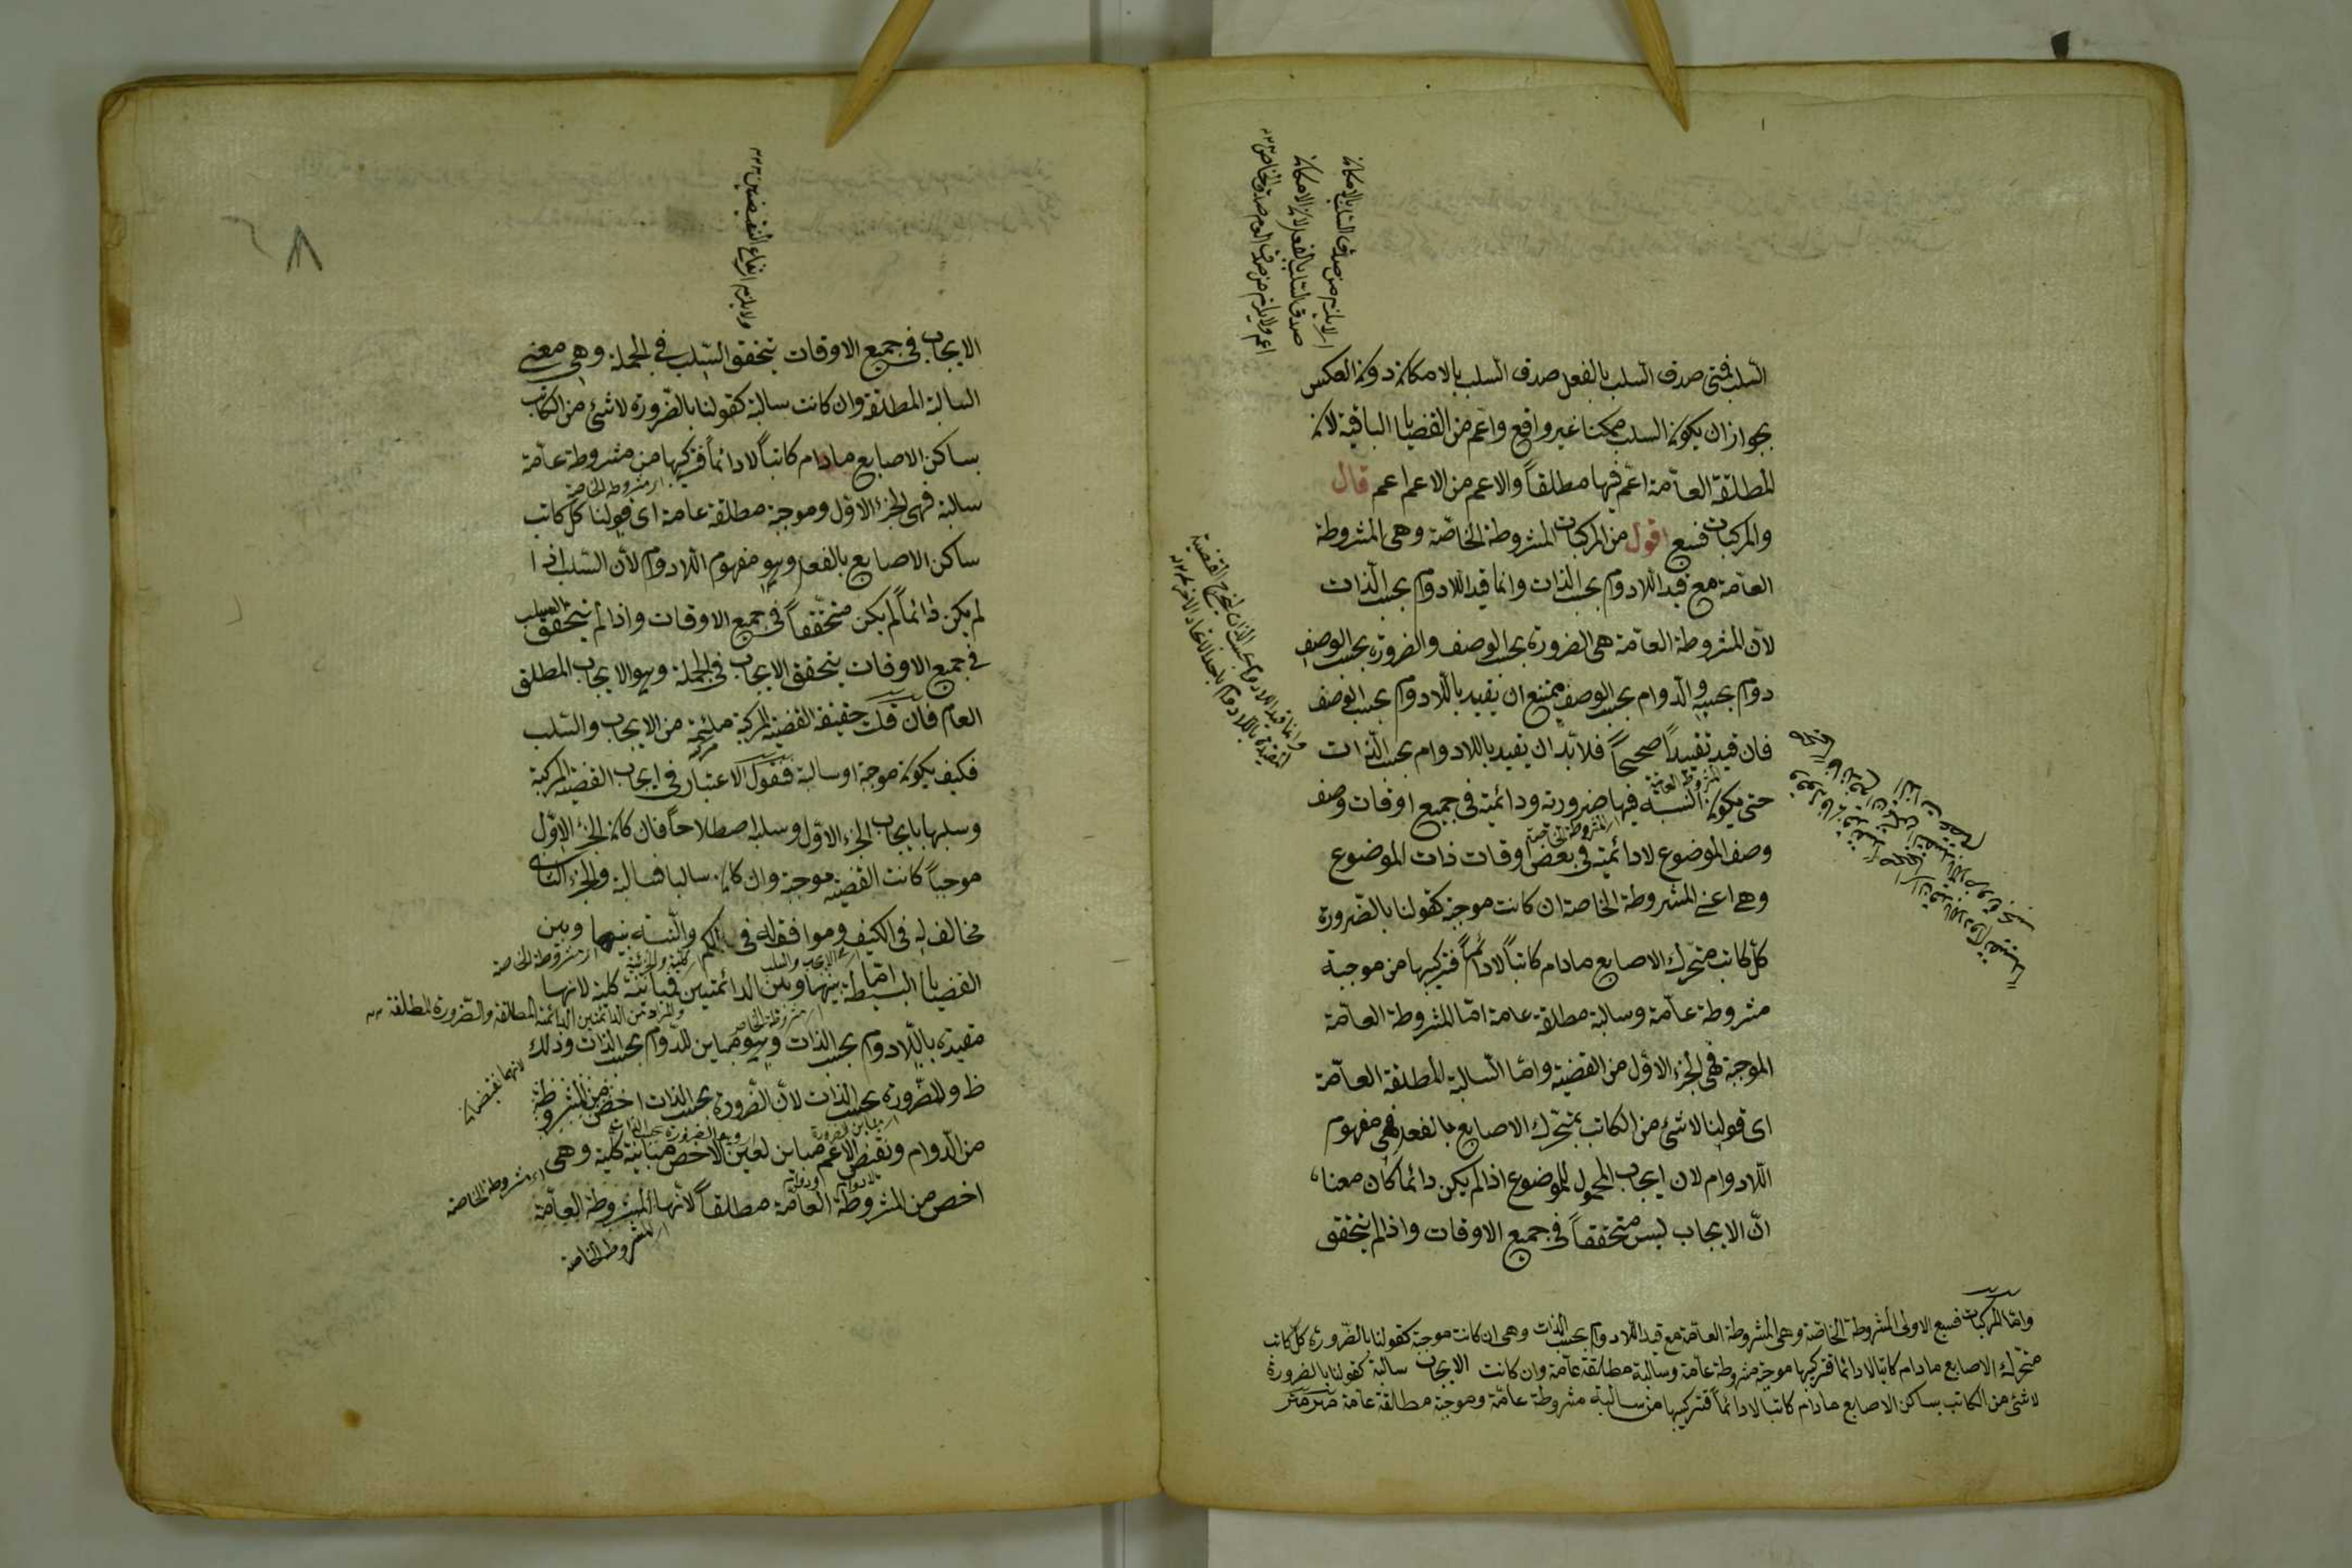 السلب فمتى صدق السلب بالفعل صدق السلب بالامكان دون العكس
بجواز ان يكون السلب ممكنا غير واقع واعم من القضايا الباقية لان
المطلقة العامة اعم فيها مطلقاً والاعم من الاعم اعم قال
والمركبات فسبع اقول من المركبات المشروطة الخاصة وهى المشروطة
العامة مع قيد اللادوام بحسب الذات وانما قيد اللادوام بحسب الذات
لان المشروطة العامة هى الضرورة بحسب الوصف والضرورة بحسب الوصف
دوام بحسبه والدوام بحسب الوصف ممتنع ان يقيد باللادوام بحسب الوصف
فان قيد تقييداً صحيحاً فلا بد ان يقيد باللادوام بحسب الذات
المشروطة العامة
حتى يكون النسبة فيها ضرورية ودائمة فى جميع اوقات وصف
المشروطة الخاصة
وصف الموضوع لا دائمة فى بعض اوقات ذات الموضوع
وهى اعنى المشروطة الخاصة ان كانت موجبة كقولنا بالضرورة
كل كاتب متحرك الاصابع مادام كاتباً لا دائماً فتركيبها من موجبة
مشروطة عامة وسالبة مطلقة عامة اما المشروطة العامة
الموجبة فهى الجزء الاول من القضية واما السالبة المطلقة العامة
اى قولنا لا شئ من الكاتب بمتحرك الاصابع بالفعل فهى مفهوم
اللادوام لان ايجاب المحمول للموضوع اذا لم يكن دائما كان معناه
ان الايجاب ليس متحققاً فى جميع الاوقات واذا لم يتحقق
واما المركبات فسبع الاولى المشروطة الخاصة وهى المشروطة العامة مع قيد اللادوام بحسب الذات وهى ان كانت موجبة كقولنا بالضرورة كل كاتب
متحرك الاصابع مادام كاتبا لا دائما فتركيبها موجبة مشروطة عامة وسالبة مطلقة عامة وان كانت الايجاب سالبة كقولنا بالضرورة
لا شئ من الكاتب بساكن الاصابع مادام كاتبا لا دائماً فتركيبها من سالبة مشروطة عامة وموجبة مطلقة عامة
لا يلزم من صدق السلب بالامكان
صدق السلب بالفعل لان الامكان
اعم ولا يلزم من صدق العام صدق الخاص
وانما قيد اللادوام بحسب الذات
ولا يلزم ارتفاع النقيضين
الايجاب فى جميع الاوقات يتحقق السلب فى الجملة وهى معنى
السالبة المطلقة وان كانت سالبة كقولنا بالضرورة لا شئ من الكاتب
بساكن الاصابع مادام كاتباً لا دائماً فتركيبها من مشروطة عامة
اى مشروطة الخاصة
سالبة فهى الجزء الاول وموجبة مطلقة عامة اى قولنا كل كاتب
ساكن الاصابع بالفعل وهو مفهوم اللادوام لان السلب اذا
لم يكن دائماً لم يكن متحققاً فى جميع الاوقات واذا لم يتحقق السلب
فى جميع الاوقات يتحقق الايجاب فى الجملة وهو الايجاب المطلق
العام فان قلت حقيقة القضية المركبة ملتئمة من الايجاب والسلب
مركبة
فكيف يكون موجبة او سالبة فنقول الاعتبار فى ايجاب القضية المركبة
وسلبها بايجاب الجزء الاول وسلبه اصطلاحاً فان كان الجزء الاول
موجباً كانت القضية موجبة وان كان سالبا فسالبة والجزء الثانى
مخالف له فى الكيف وموافق له فى الكم والنسبة بينها وبين
اى الايجاب والسلب اى كلية والجزئية اى مشروطة الخاصة
القضايا البسيطة اما بينها وبين الدائمتين فمباينة كلية لانها
اى مشروطة الخاصة والمراد من الدائمتين الدائمة المطلقة والضرورة المطلقة
مقيدة باللادوام بحسب الذات وهو مباين للدوام بحسب الذات وذلك
لانهما نقيضان
ظ وللضرورة بحسب الذات لان الضرورة بحسب الذات اخص من المشروطة
من الدوام ونقيض الاعم مباين لعين الاخص مباينة كلية وهى
اى مشروطة الخاصة
اخص من المشروطة العامة مطلقاً لانها المشروطة العامة
اى المشروطة الخاصة